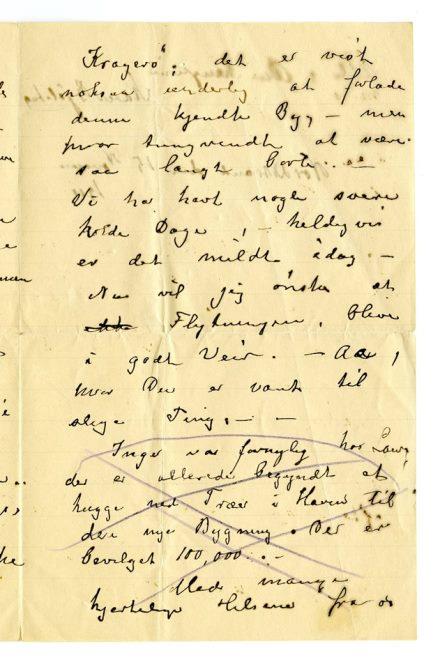 Kragerø"; det er vist
noksaa underlig at forlade
denne kjendte Byg – men
hvor tungvendt at være
saa langt borte. –
Vi har havt nogle svære
kolde Dage, – heldigvis
er det mildt idag –
Nu vil jeg ønske at
Flytningen, blive
i godt Veir. – Aa,
hvor De er vant til
slige Ting, – –
Inger var fornylig hos
der er allerede begyndt at
hugge ned Trær i Haven til
den nye Bygning. Der er
bevilget 100,000.. –
Med mange
hjertelige Hilsener fra os